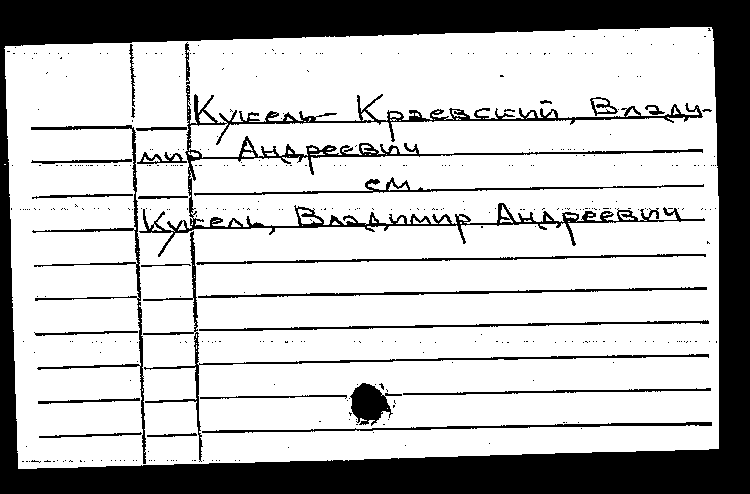 Кукель-Краевский, Влади-
мир Андреевич
см.
Кукель, Владимир Андреевич